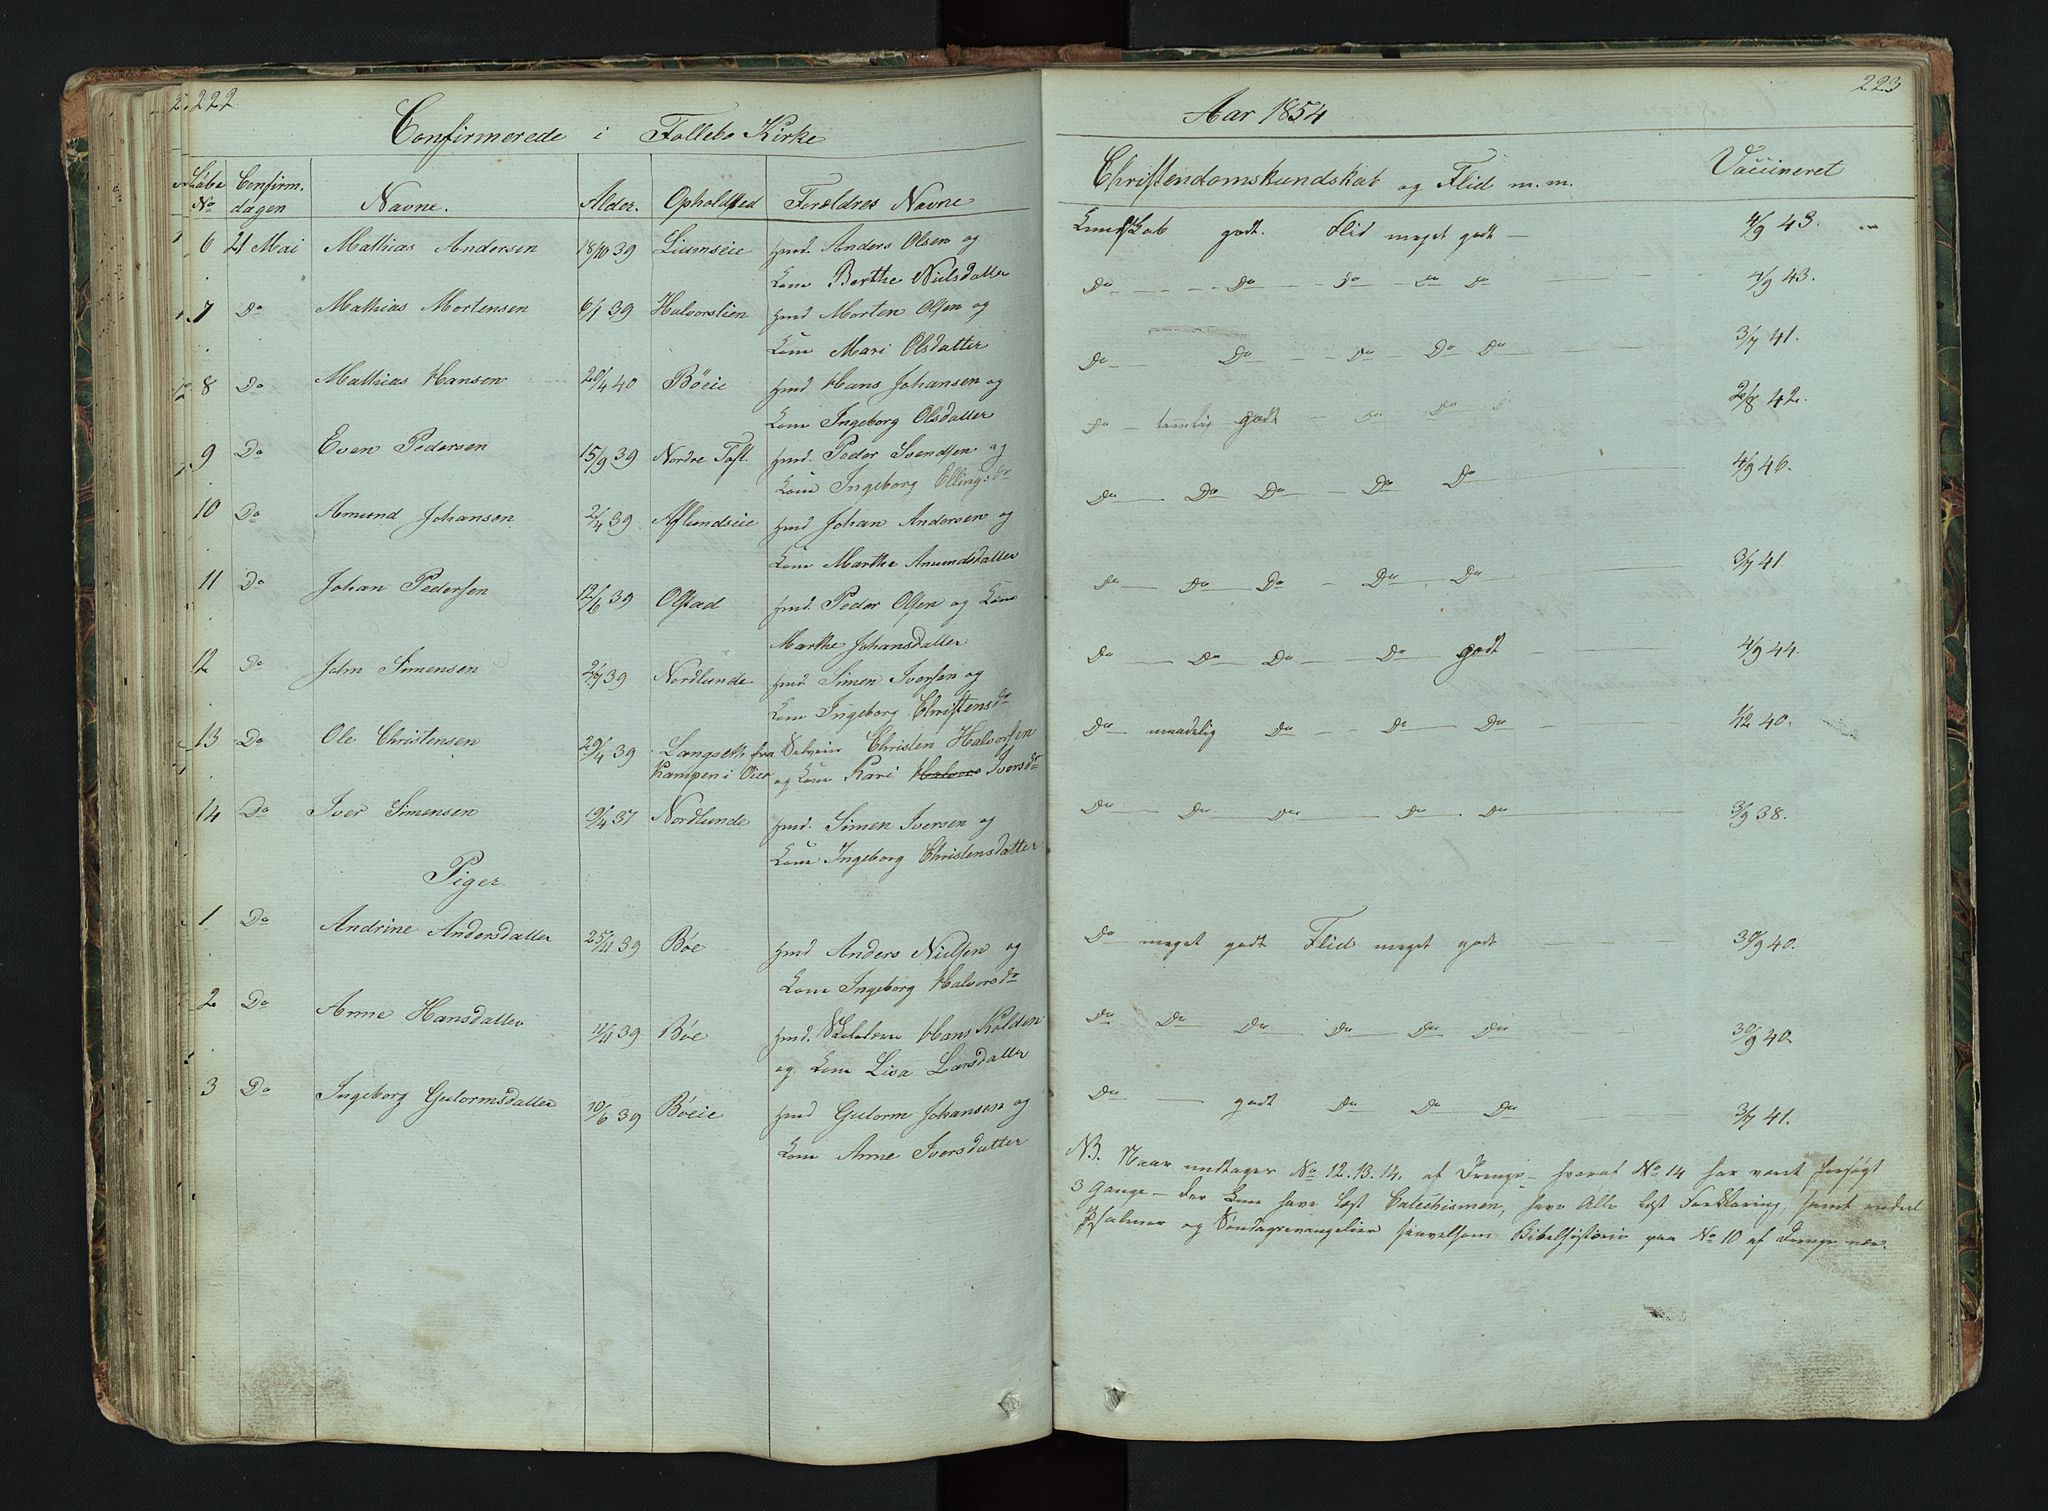 222
Confirmerede i Follebo Kirke
Løbe No
Confirm. dagen
Navne.
Alder.
Opholdsted
Forældres Navne
6 21 Mai Mathias Andersen 18/10 39 Liumseie Hmd. Anders Olsen og
Kone Berthe Nielsdatter
7 Do Mathias Mortensen 6/1 39 Halvorslien Hmd Morten Olsen og
Kone Mari Olsdatter
8 Do Mathias Hansen 20/4 40 Bøeie Hmd Hans Johansen og
Kone Ingeborg Olsdatter
9 Do Even Pedersen 15/9 39 Nordre Toft. Hmd. Peder Svendsen og
Kone Ingeborg Ellingsdr
10 Do Amund Johansen 39 Aflundseie Hmd Johan Andersen og
Kone Marthe Amundsdatter
11 Do Johan Pedersen 12/6 39 Olstad Hmd. Peder Olsen og Kone
Marthe Johansdatter
12 Do John Simensen 39 Nordlunde Hmd. Simen Iversen og
Kone Ingeborg Christensdr
13 Do Ole Christensen 29/4 39 Langseth fra Selveier Christen Halvorsen
Kampen i Øier og Kone Kari Halvors Iversdr
14 Do Iver Simensen 19/4 37 Nordlunde Hmd. Simen Iversen og
Kone Ingeborg Christensdatter
Piger
1 Do Andrine Andersdatter 25/11 39 Bøe Hmd Anders Nielsen og
Kone Ingeborg Halvorsdr
2 Do Anne Hansdatter 11/11 39 Bøe Hmd. Hans Kolden
og Kone Lisa Larsdatter
3 Do Ingeborg Gulormsdatter 10/6 39 Bøeie Hmd Gulorm Johansen og
Kone Anne Iversdatter
223
Aar 1854
Christendomskundskab og Flid m.m.
Vaccineret
Kundskab godt. Flid meget godt 4/9 43.
Do Do Do Do Do 4/9 43.
Do Do Do Do Do 3/7 41.
Do temlig godt Do Do 2/8 42.
Do Do Do Do Do 4/9 46.
Do Do Do Do Do 3/7 41.
Do Do Do Do godt 4/9 44.
Do maadelig Do Do Do 1/12 40.
Do Do Do Do Do 3/9 38.
Do meget godt Flid meget godt 30/9 40.
Do Do Do Do Do Do 30/9 40.
Do godt Do Do Do 3/7 41.
NB. Naar undtages No 12. 13. 14. af Drenge – hvoraf No 14 har været forsøgt
3 Gange – der kun have læst Catechismen, have Alle læst Forklaring, samt endeel
Psalmer og Søndagsevangelier saavelsom Bibelhistorie paa No 10 af Drenge nær.